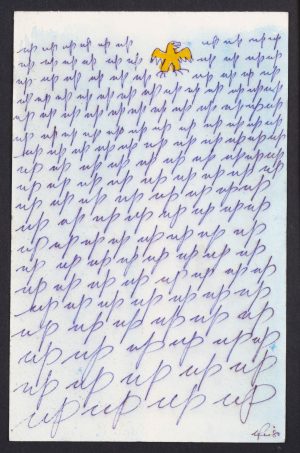 up up up up up up up up up
up up up up up up up up up up
up up up up up up up up up up
up up up up up up up up up up up
up up up up up up up up up up up
up up up up up up up up up up up
up up up up up up up up up up up
up up up up up up up up up up
up up up up up up up up up up
up up up up up up up up up
up up up up up up up up up
up up up up up up up up
up up up up up up up up
up up up up up up up up
up up up up up up up
up up up up up up up
up up up up up up
up up up up up up
up up up up up